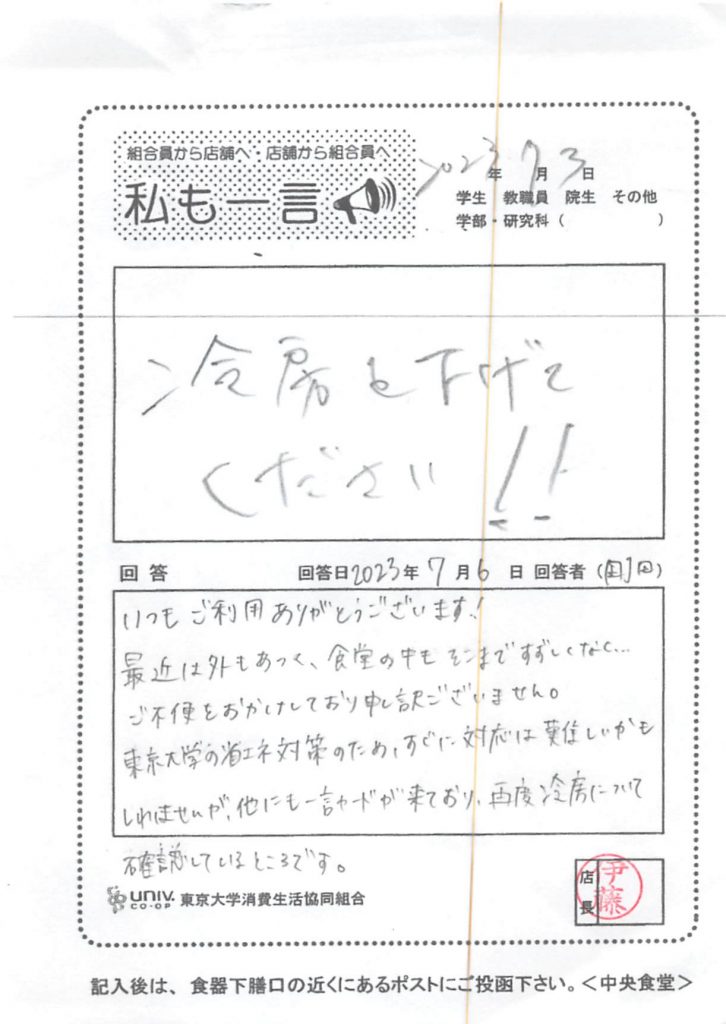 組合員から店舗へ・店舗から組合員へ
私も一言
2023年7月3日
学生 教職員 院生 その他
学部・研究科（ ）
冷房を下げて
ください!!
回答 回答日2023年7月6日 回答者（ ）
いつもご利用ありがとうございます!
最近は外もあつく、食堂の中もそこまですずしくなく…
ご不便をおかけしており申し訳ございません。
東京大学の省エネ対策のため、すぐに対応は難しいかも
しれませんが、他にも一言カードが来ており、再度冷房について
確認しているところです。
UNIV. CO-OP 東京大学消費生活協同組合
店長 伊藤
記入後は、食器下膳口の近くにあるポストにご投函下さい。＜中央食堂＞